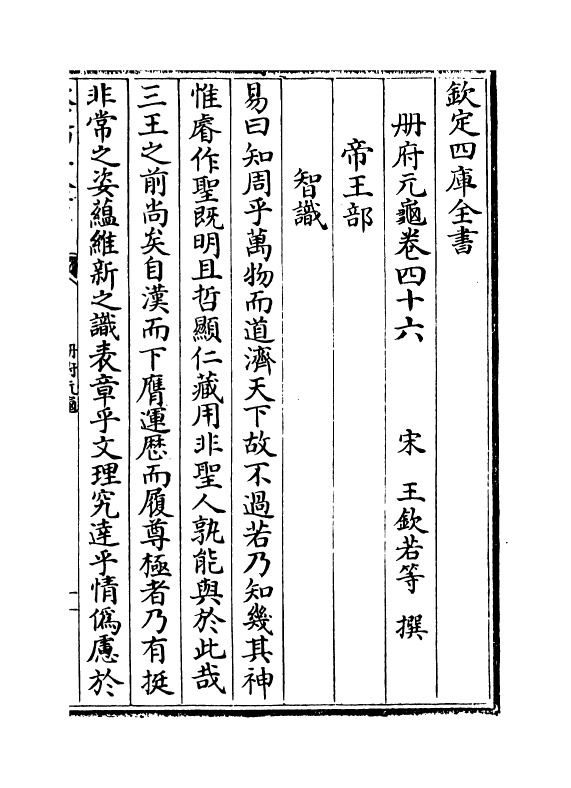 欽定四庫全書
册府元龜卷四十六　宋　王欽若等　撰
帝王部
智識
易曰知周乎萬物而道濟天下故不過若乃知幾其神
惟睿作聖既明且哲顯仁藏用非聖人孰能與於此哉
三王之前尚矣自漢而下膺運歷而履尊極者乃有挺
非常之姿蘊維新之識表章乎文理究達乎情僞慮於
册府元龜